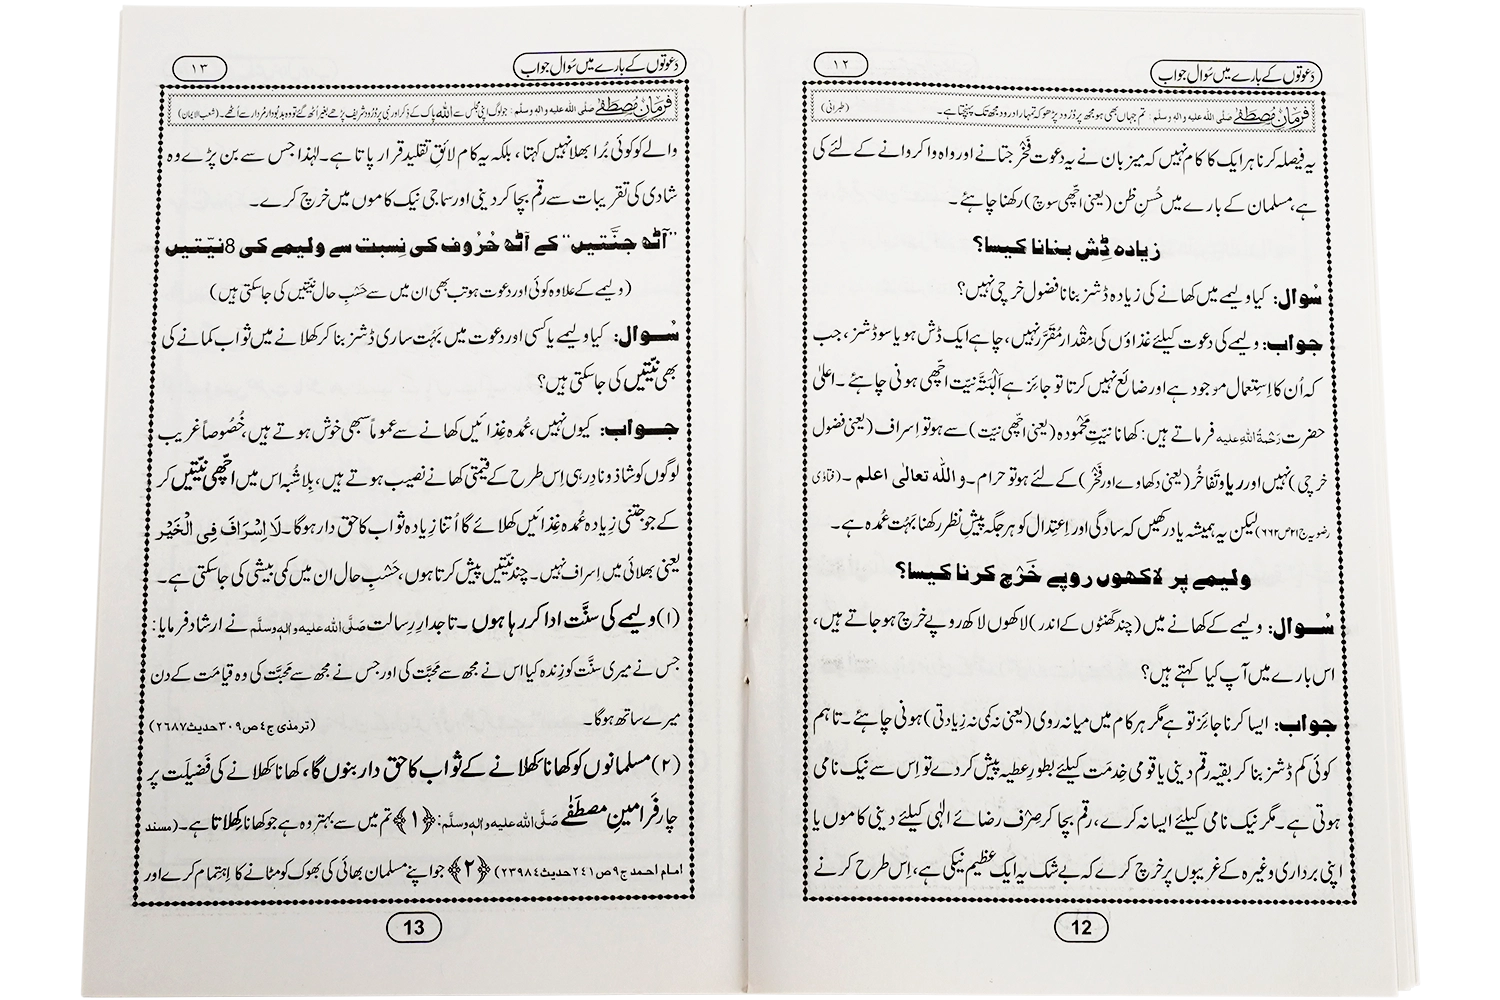 دعوتوں کے بارے میں سُوال جواب
١٢
فرمانِ مصطَفٰے صلی اللہ علیہ واٰلہ وسلم: تم جہاں بھی ہو مجھ پر دُرُود پڑھو کہ تمہارا درود مجھ تک پہنچتا ہے۔ (طبرانی)
یہ فیصلہ کرنا ہر ایک کا کام نہیں کہ میزبان نے یہ دعوت فَخْر جتانے اور واہ وا کروانے کے لئے کی
ہے، مسلمان کے بارے میں حُسنِ ظن (یعنی اچھی سوچ) رکھنا چاہئے۔
زیادہ ڈِش بنانا کیسا؟
سُوال: کیا ولیمے میں کھانے کی زیادہ ڈشز بنانا فضول خرچی نہیں؟
جواب: ولیمے کی دعوت کیلئے غذاؤں کی مِقْدار مُقَرَّر نہیں، چاہے ایک ڈش ہو یا سو ڈشز، جب
کہ اُن کا اِستِعمال موجود ہے اور ضائع نہیں کرتا تو جائز ہے اَلْبَتَّہ نیّت اچھی ہونی چاہئے۔ اعلیٰ
حضرت رَحْمَۃُ اللہِ علیہ فرماتے ہیں: کھانا نیّتِ مَحْمُودہ (یعنی اچھی نیت) سے ہو تو اِسراف (یعنی فضول
خرچی) نہیں اور ریا و تَفاخُر (یعنی دکھاوے اور فَخْر) کے لئے ہو تو حرام۔ واللہ تعالٰی اعلم۔ (فتاوٰی
رضویہ ج۲۱ ص۶۶۲) لیکن یہ ہمیشہ یاد رکھیں کہ سادگی اور اِعتِدال کو ہر جگہ پیشِ نظر رکھنا بَہُت عُمدہ ہے۔
ولیمے پر لاکھوں روپے خَرْچ کرنا کیسا؟
سُوال: ولیمے کے کھانے میں (چند گھنٹوں کے اندر) لاکھوں لاکھ روپے خرچ ہو جاتے ہیں،
اس بارے میں آپ کیا کہتے ہیں؟
جواب: ایسا کرنا جائز تو ہے مگر ہر کام میں میانہ روی (یعنی نہ کمی نہ زیادتی) ہونی چاہئے۔ تاہم
کوئی کم ڈشز بنا کر بقیہ رقم دینی یا قومی خِدمَت کیلئے بطورِ عطیہ پیش کر دے تو اِس سے نیک نامی
ہوتی ہے۔ مگر نیک نامی کیلئے ایسا نہ کرے، رقم بچا کر صِرْف رضائے الٰہی کیلئے دینی کاموں یا
اپنی برداری وغیرہ کے غریبوں پر خرچ کرے کہ بے شک یہ ایک عظیم نیکی ہے، اِس طرح کرنے
12
دعوتوں کے بارے میں سُوال جواب
١٣
فرمانِ مصطَفٰے صلی اللہ علیہ واٰلہ وسلم: جو لوگ اپنی مجلس سے اللہ پاک کے ذِکر اور نبی پر دُرُود شریف پڑھے بغیر اُٹھ گئے تو وہ بدبودار مُردار سے اُٹھے۔ (شعب الایمان)
والے کو کوئی بُرا بھلا نہیں کہتا، بلکہ یہ کام لائقِ تقلید قرار پاتا ہے۔ لہٰذا جس سے بن پڑے وہ
شادی کی تقریبات سے رقم بچا کر دینی اور سماجی نیک کاموں میں خرچ کرے۔
"آٹھ جنَّتیں" کے آٹھ حُرُوف کی نِسبت سے ولیمے کی 8 نیّتیں
(ولیمے کے علاوہ کوئی اور دعوت ہو تب بھی ان میں سے حَسْبِ حال نیّتیں کی جا سکتی ہیں)
سُوال: کیا ولیمے یا کسی اور دعوت میں بَہُت ساری ڈشز بنا کر کھلانے میں ثواب کمانے کی
بھی نیّتیں کی جا سکتی ہیں؟
جواب: کیوں نہیں، عُمدہ غِذائیں کھانے سے عموماً سبھی خوش ہوتے ہیں، خُصُوصاً غریب
لوگوں کو شاذ و نادِر ہی اِس طرح کے قیمتی کھانے نصیب ہوتے ہیں، بِلاشُبہ اس میں اچھی نیّتیں کر
کے جو جتنی زیادہ عُمدہ غِذائیں کھلائے گا اُتنا زیادہ ثواب کا حق دار ہوگا۔ لَا اِسْرَافَ فِی الْخَیْر
یعنی بھلائی میں اِسراف نہیں۔ چند نیّتیں پیش کرتا ہوں، حَسْبِ حال ان میں کمی بیشی کی جا سکتی ہے۔
(۱) ولیمے کی سنَّت ادا کر رہا ہوں۔ تاجدارِ رسالت صَلَّی اللہ علیہ واٰلہٖ وسلَّم نے ارشاد فرمایا:
جس نے میری سنَّت کو زِندہ کیا اس نے مجھ سے مَحَبَّت کی اور جس نے مجھ سے مَحَبَّت کی وہ قِیامَت کے دن
میرے ساتھ ہوگا۔ (ترمذی ج٤ ص٣٠٩ حدیث٢٦٨٧)
(۲) مسلمانوں کو کھانا کھلانے کے ثواب کا حق دار بنوں گا، کھانا کھلانے کی فَضِیلَت پر
چار فَرامینِ مصطَفٰے صَلَّی اللہ علیہ واٰلہٖ وسلَّم: ﴿۱﴾ تم میں سے بہتر وہ ہے جو کھانا کِھلاتا ہے۔ (مسند
امام احمد ج٩ ص٢٤١ حدیث٢٣٩٨٤) ﴿۲﴾ جو اپنے مسلمان بھائی کی بھوک کو مٹانے کا اِہتِمام کرے اور
13